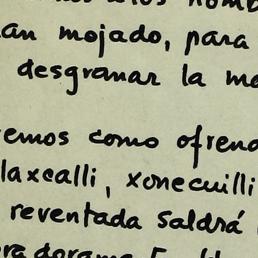 an mojado, para
desgranar la ma
remos como ofrend
laxcalli, xonecuilli
reventada saldrá